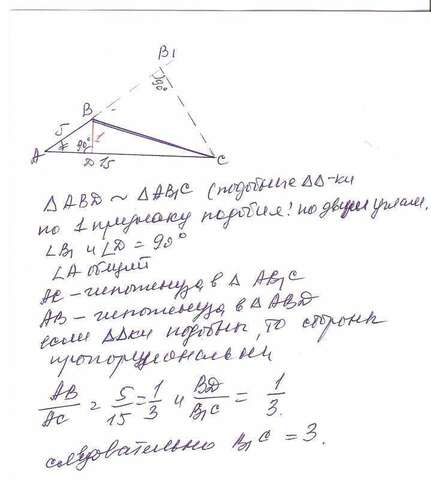 B1
90°
B
5
x
90°
1
A
D 15
C
△ABD ~ △AB1C (подобные △△-ки
по 1 признаку подобия! по двум углам.
∠B1 и ∠D = 90°
∠A общий
AC - гипотенуза в △ AB1C
AB - гипотенуза в △ ABD
если △△ки подобны, то стороны
пропорциональны
AB/AC = 5/15 = 1/3 и BD/B1C = 1/3.
следовательно B1C = 3.